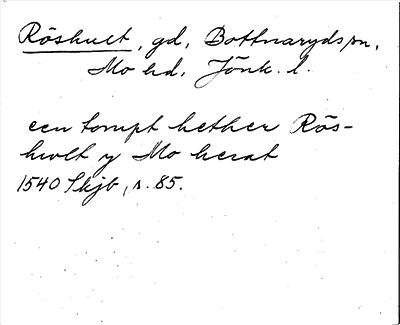 Röshult, gd, Bottnaryds sn,
Mo hd, Jönk. l.
een tompt hether Rös-
hwlt y Mo herat
1540 Skjb, s. 85.